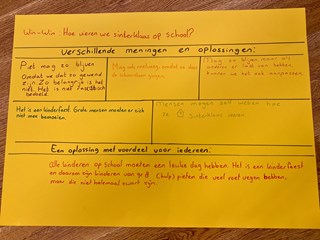 win-win: Hoe vieren we sinterklaas op school?
Verschillende meningen en oplossingen:
Piet mag zo blijven
Omdat we dat zo gewend
zijn. Zo belangrijk is het
niet. Het is niet
bedoeld.
Mag ook roetveeg, omdat ze door
de schoorsteen gaan.
Mag zo blijven, maar als
anderen er last van hebben,
kunnen we het ook aanpassen.
Het is een kinderfeest. Grote mensen moeten er zich
niet mee bemoeien.
Mensen mogen zelf weten hoe
ze Sinterklaas vieren.
Een oplossing met voordeel voor iedereen:
Alle kinderen op school moeten een leuke dag hebben. Het is een kinderfeest
en daarom zijn kinderen van gr 8 (hulp) pieten die veel roet vegen hebben,
maar die niet helemaal zwart zijn.